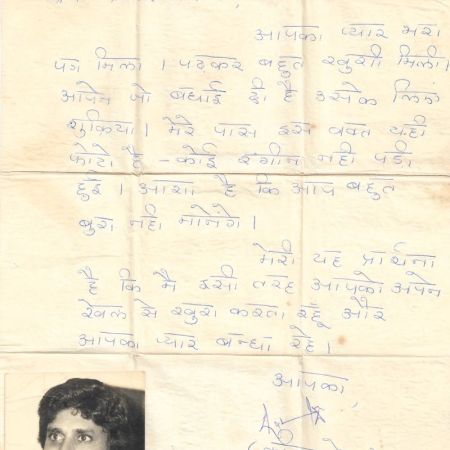 आपका प्यार भरा
पत्र मिला । पढ़कर बहुत खुशी मिली।
आपने जो बधाई दी है उसके लिए
शुक्रिया। मेरे पास इस वक्त यही
फोटो है - कोई रंगीन नहीं पड़ी
हुई । आशा है कि आप बहुत
बुरा नहीं मानेंगे ।
मेरी यह प्रार्थना
है कि मैं इसी तरह आपको अपने
खेल से खुश करता रहूं और
आपका प्यार बना रहे ।
आपका,